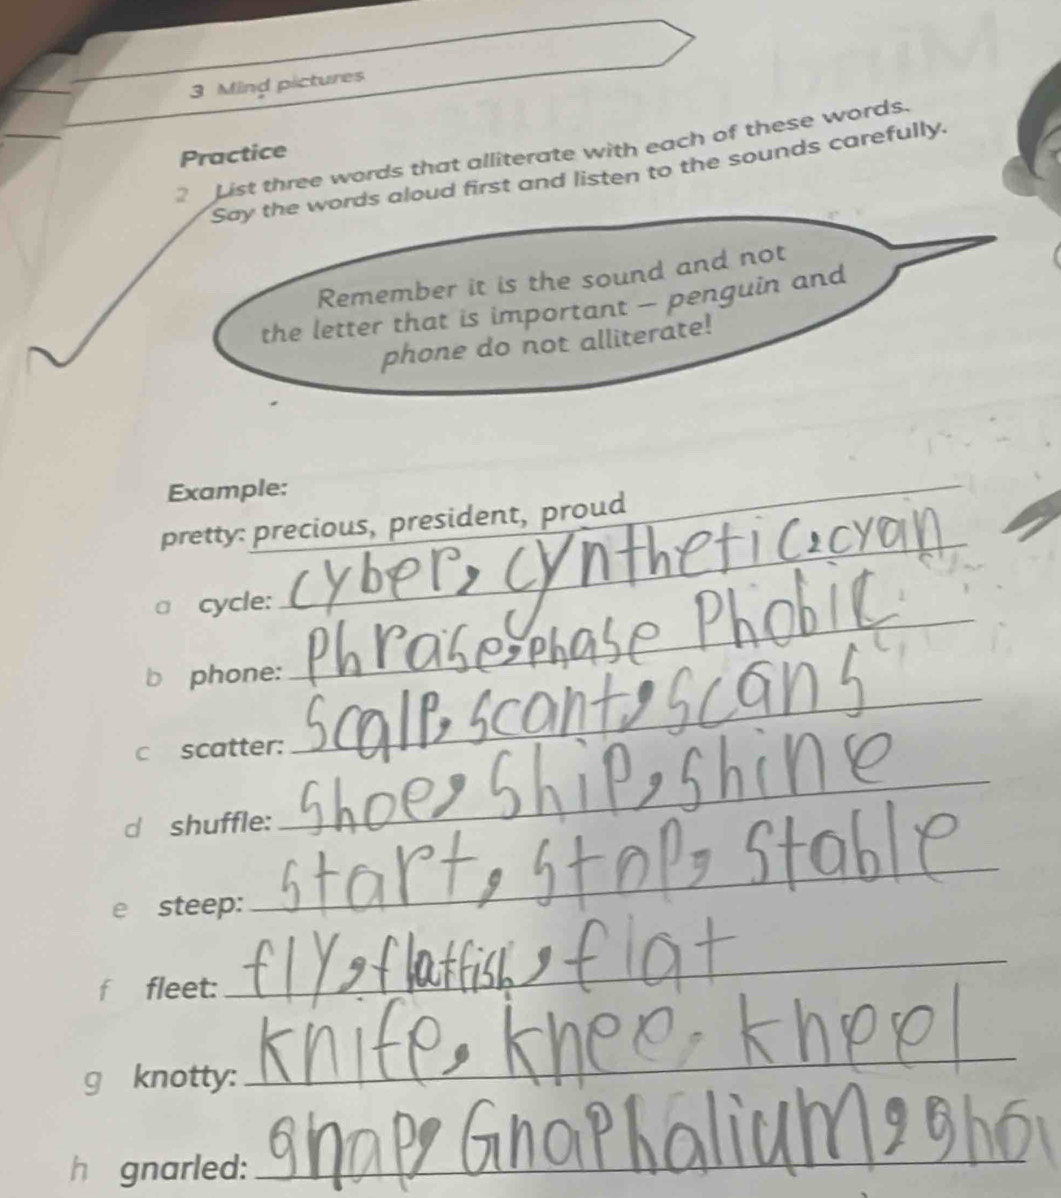 3 Mind pictures
Practice
2 List three words that alliterate with each of these words.
Say the words aloud first and listen to the sounds carefully.
Remember it is the sound and not
the letter that is important – penguin and
phone do not alliterate!
Example:
pretty: precious, president, proud
a cycle: cyber, cynthetic, cyan
b phone: Phrase, phase Phobic
c scatter: Scalp, scant, scans
d shuffle: Shoe, Ship, Shine
e steep: start, stop, stable
f fleet: fly, flatfish, flat
g knotty: knife, knee, kneel
h gnarled: Gnaphalium,